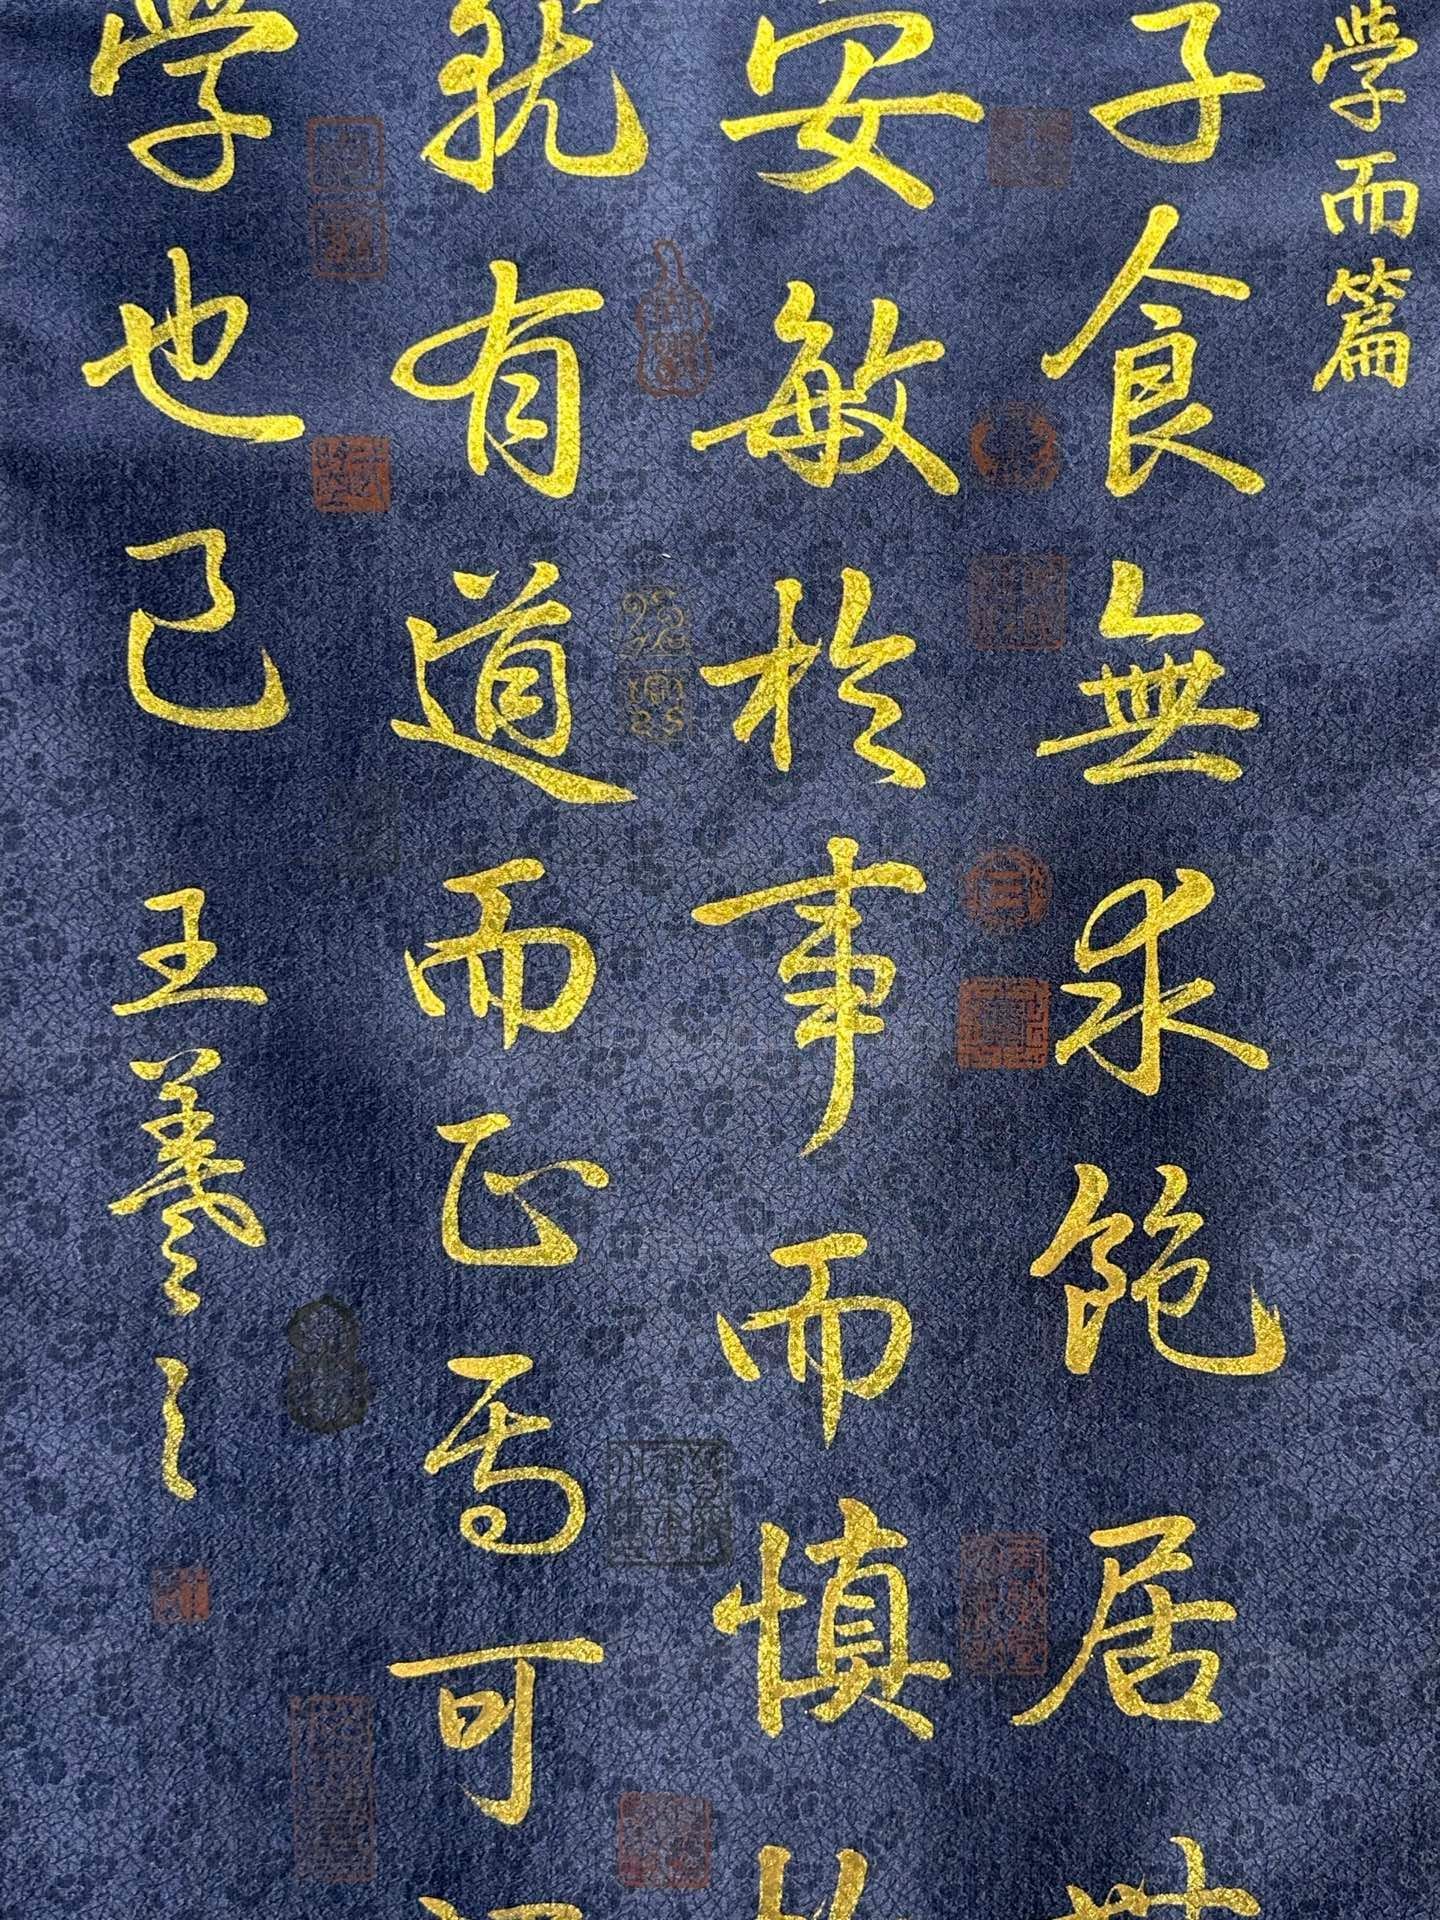 學而篇
子食無求飽居
安敏於事而慎
就有道而正焉可
學也已 王羲之